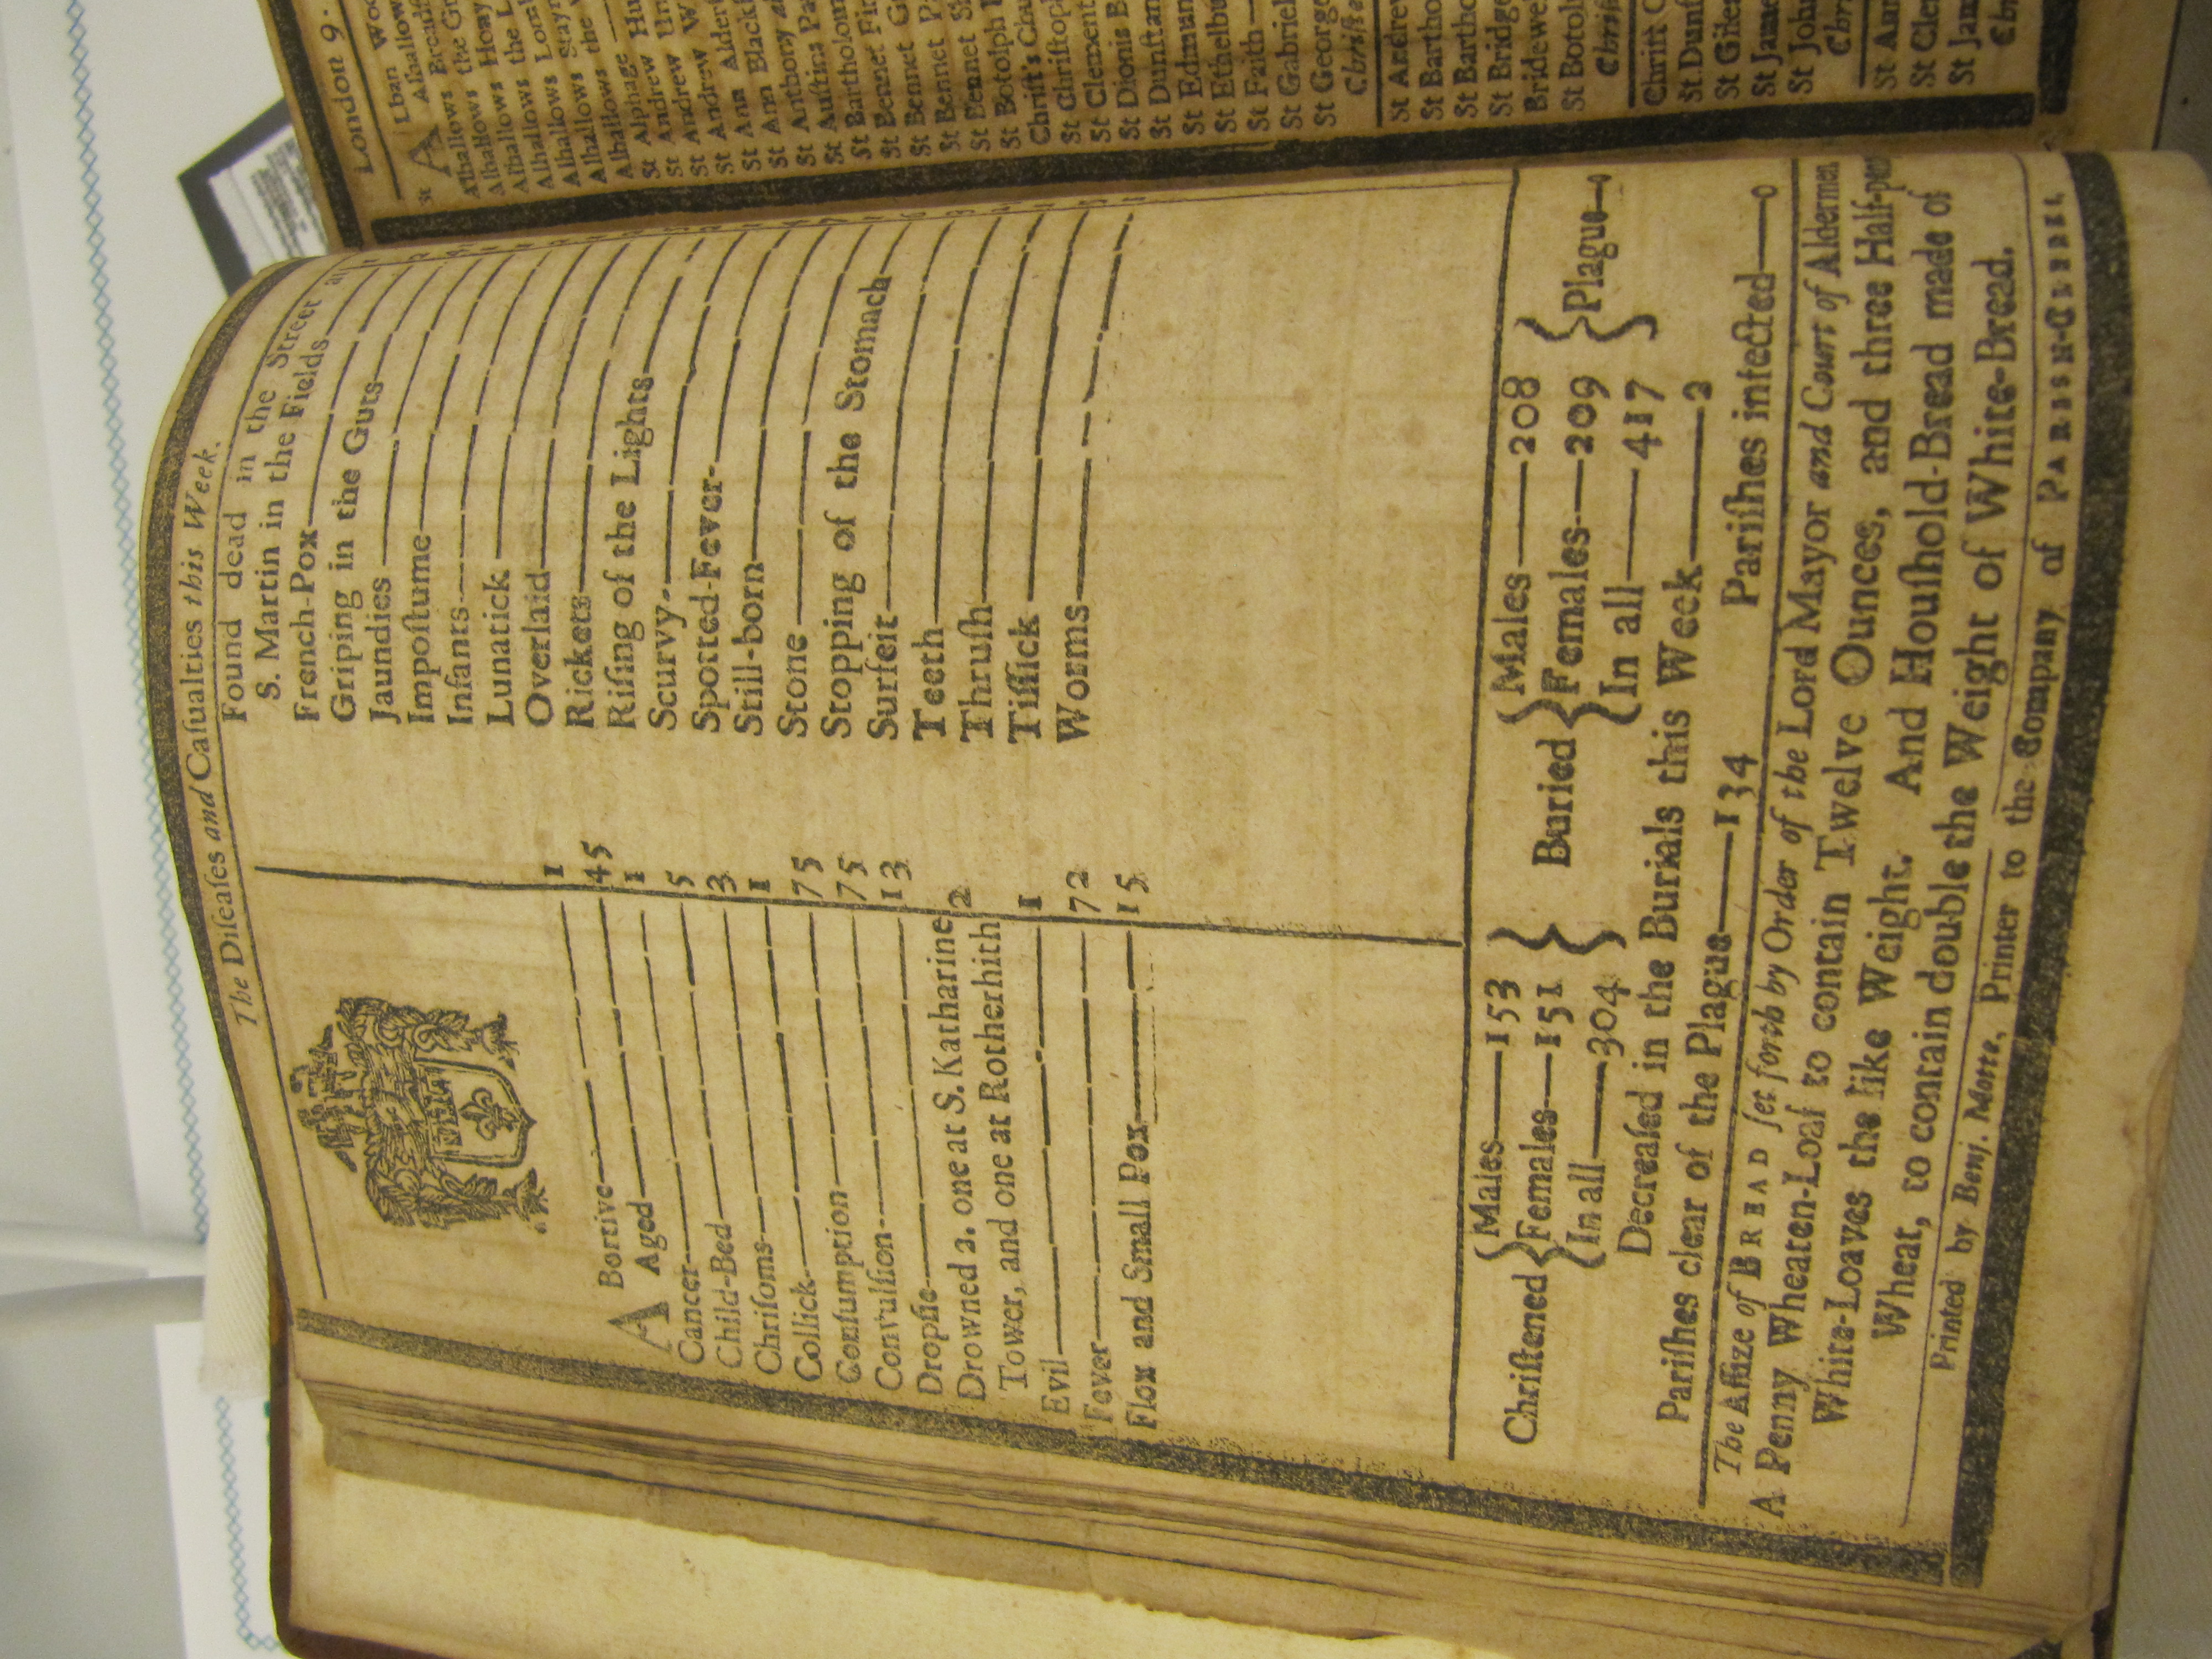 The Diſeaſes and Caſualties this Week.
ABortive 1
Aged 45
Cancer 1
Child-Bed 5
Chriſoms 3
Collick 1
Conſumption 75
Convulſion 75
Dropſie 13
Drowned 2. one at S. Katharine
Tower, and one at Rotherhith 2
Evil 1
Fever 72
Flox and Small Pox 15
Found dead in the Street at
S. Martin in the Fields
French-Pox
Griping in the Guts
Jaundies
Impoſtume
Infants
Lunatick
Overlaid
Rickets
Riſing of the Lights
Scurvy
Spotted-Fever
Still-born
Stone
Stopping of the Stomach
Surfeit
Teeth
Thruſh
Tiſſick
Worms
Chriſtened { Males 153 Females 151 In all 304 }
Buried { Males 208 Females 209 In all 417 } Plague 0
Decreaſed in the Burials this Week 2
Pariſhes clear of the Plague 134 Pariſhes infected 0
The Aſſize of BREAD ſet forth by Order of the Lord Mayor and Court of Aldermen
A Penny Wheaten-Loaf to contain Twelve Ounces, and three Half-
White-Loaves the like Weight. And Houſhold-Bread made of
Wheat, to contain double the Weight of White-Bread.
Printed by Benj. Motte, Printer to the Company of PARISH-CLERKS.
London 9.
St Alban Woo
Alhallow
Alhallows Breadſ
Alhallows the Gr
Alhallows Hony
Alhallows the L
Alhallows Lomb
Alhallows Stayn
Alhallows the
Alphage
St Alphage
St Andrew Hu
St Andrew Un
St Andrew W
St Ann Alderſ
St Ann Blackf
St Anthony al
St Auſtins Pa
St Bartholom
St Bennet Fin
St Bennet Gr
St Bennet P
St Bennet Sh
St Botolph
Chriſt's Chu
St Chriſtoph
St Clement
St Dionis B
St Dunſtan
St Edmun
St Ethelbu
St Faith
St Gabriel
St George
Chriſte
St Andrew
St Bartho
St Bartho
St Bridge
Bridewel
St Botol
Chriſt
Chriſt C
St Dunſ
St Giles
St Jame
St John
Chr
St Ann
St Cle
St Jam
Ch